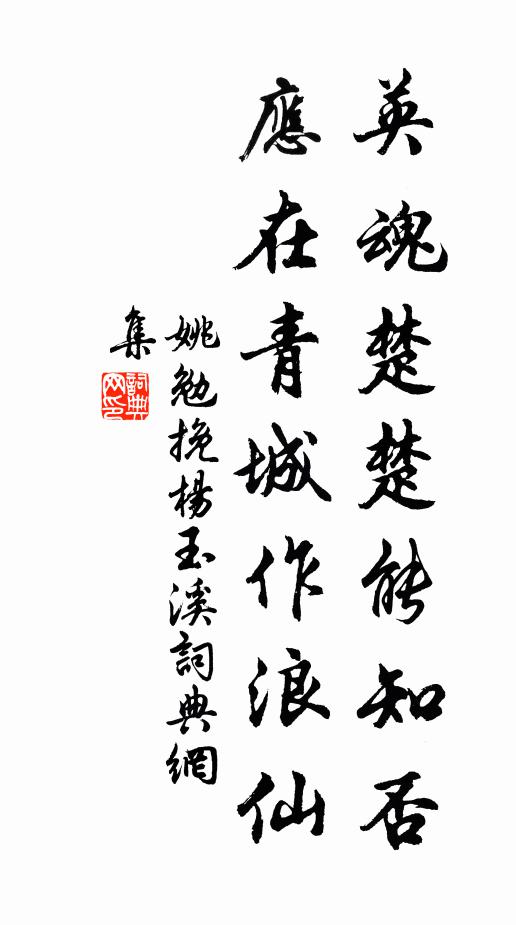 英魂楚楚能知否
應在青城作浪仙
姚勉挽楊玉溪詞典網
集
詞典網印